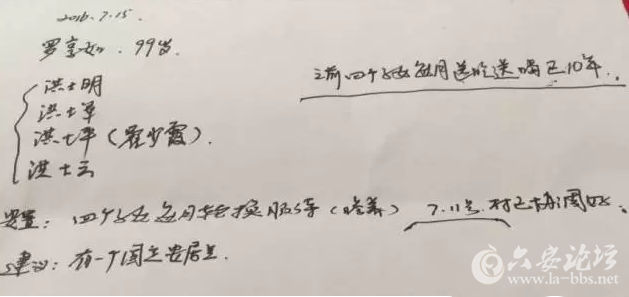 2016.7.15
罗享如.99岁.
之前四个子女每月送吃送喝已10年.
洪士明
洪士军
洪士平(霍少霞).
洪士云
安置:四个子女每月轮换服侍(赡养)7.11号.村已协调好.
建议:有一个固定安居点.
六安论坛
www.la-bbs.net